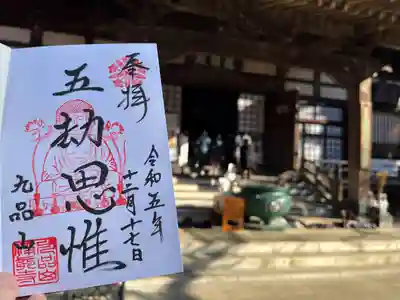 奉拝
令和五年
十二月十七日
五劫思惟
九品山